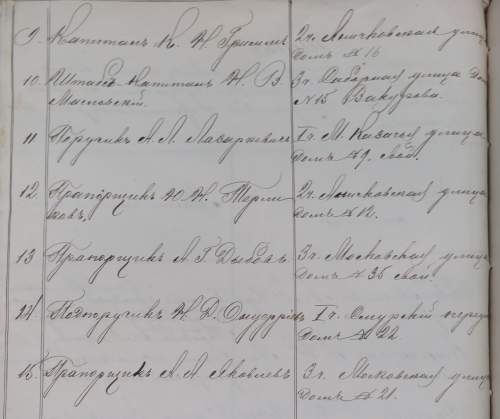 9. Капитанъ К. Н. 2ч. улица
домъ № 16
10. Штабсъ-Капитанъ Н. В. 3ч. Соборная улица Домъ
Масловскій. № 15 Вакурова.
11 Поручикъ А. Л. Лазаркевичъ Iч. М. Казачья улица
домъ № 9. свой.
12. Прапорщикъ Ю. Н. 2ч. Московская улица
ковъ. домъ № 12.
13 Прапорщикъ А. Г. Дыбовъ 3ч. Московская улица
домъ № 35 свой.
14 Подпоручикъ Н. Д. Iч.
Домъ № 22
15. Прапорщикъ А. А. Яковлевъ 3ч. Московская улица
домъ № 21.